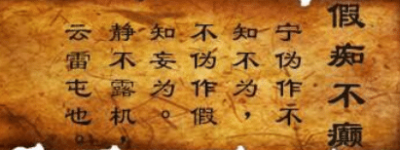 假痴不癫
宁伪作不
知不为，
不伪作假
知妄为。
静不露机，
云雷屯也。